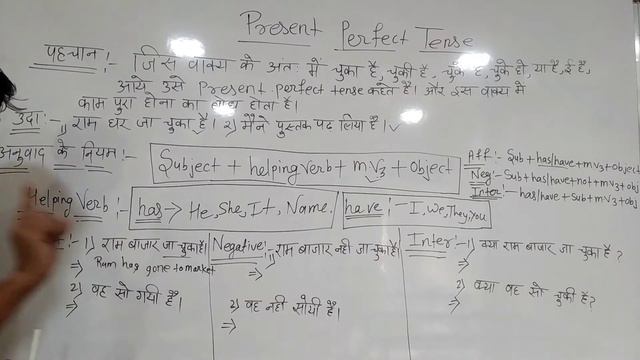 Present Perfect Tense
पहचान :- जिस वाक्य के अंत में चुका है, चुकी है, चुके है, चुके हो, या है, ई है,
आये उसे Present perfect tense कहते हैं। और इस वाक्य में
काम पूरा होना का बोध होता है।
उदा :- 1) राम घर जा चुका है। 2) मैंने पुस्तक पढ़ लिया है।
अनुवाद के नियम :- Subject + helping verb + mv3 + object
Aff :- Sub + has/have + mv3 + obj
Neg :- Sub + has/have + not + mv3 + obj
Inter :- has/have + Sub + mv3 + obj
Helping Verb :- has → He, She, It, Name. have :- I, We, They, You
1) राम बाजार जा चुका है। Negative :- 1) राम बाजार नही जा चुका है। Inter :- 1) क्या राम बाजार जा चुका है ?
⇒ Ram has gone to market ⇒
2) वह सो गयी है। 2) वह नही सोयी है। 2) क्या वह सो चुकी है ?
⇒ ⇒ ⇒